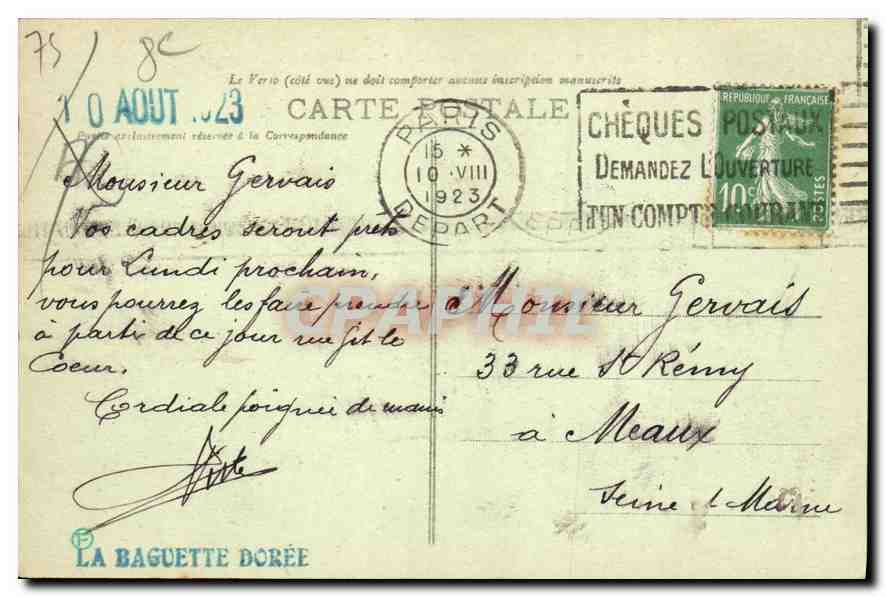 75 8c
Le Verso (côté vue) ne doit comporter aucune inscription manuscrite
10 AOUT 1923
CARTE POSTALE
Partie exclusivement réservée à la Correspondance
PARIS
15 *
10 · VIII
1923
DEPART
CHÈQUES POSTAUX
DEMANDEZ L'OUVERTURE
D'UN COMPTE COURANT
REPUBLIQUE FRANÇAISE
10c
POSTES
Monsieur Gervais
Vos cadres seront prêts
pour Lundi prochain,
vous pourrez les faire prendre
à partir de ce jour rue Git le
Coeur.
Cordiale poignée de mains
LA BAGUETTE DORÉE
Monsieur Gervais
33 rue St Rémy
à Meaux
Seine et Marne
CPAPHIL